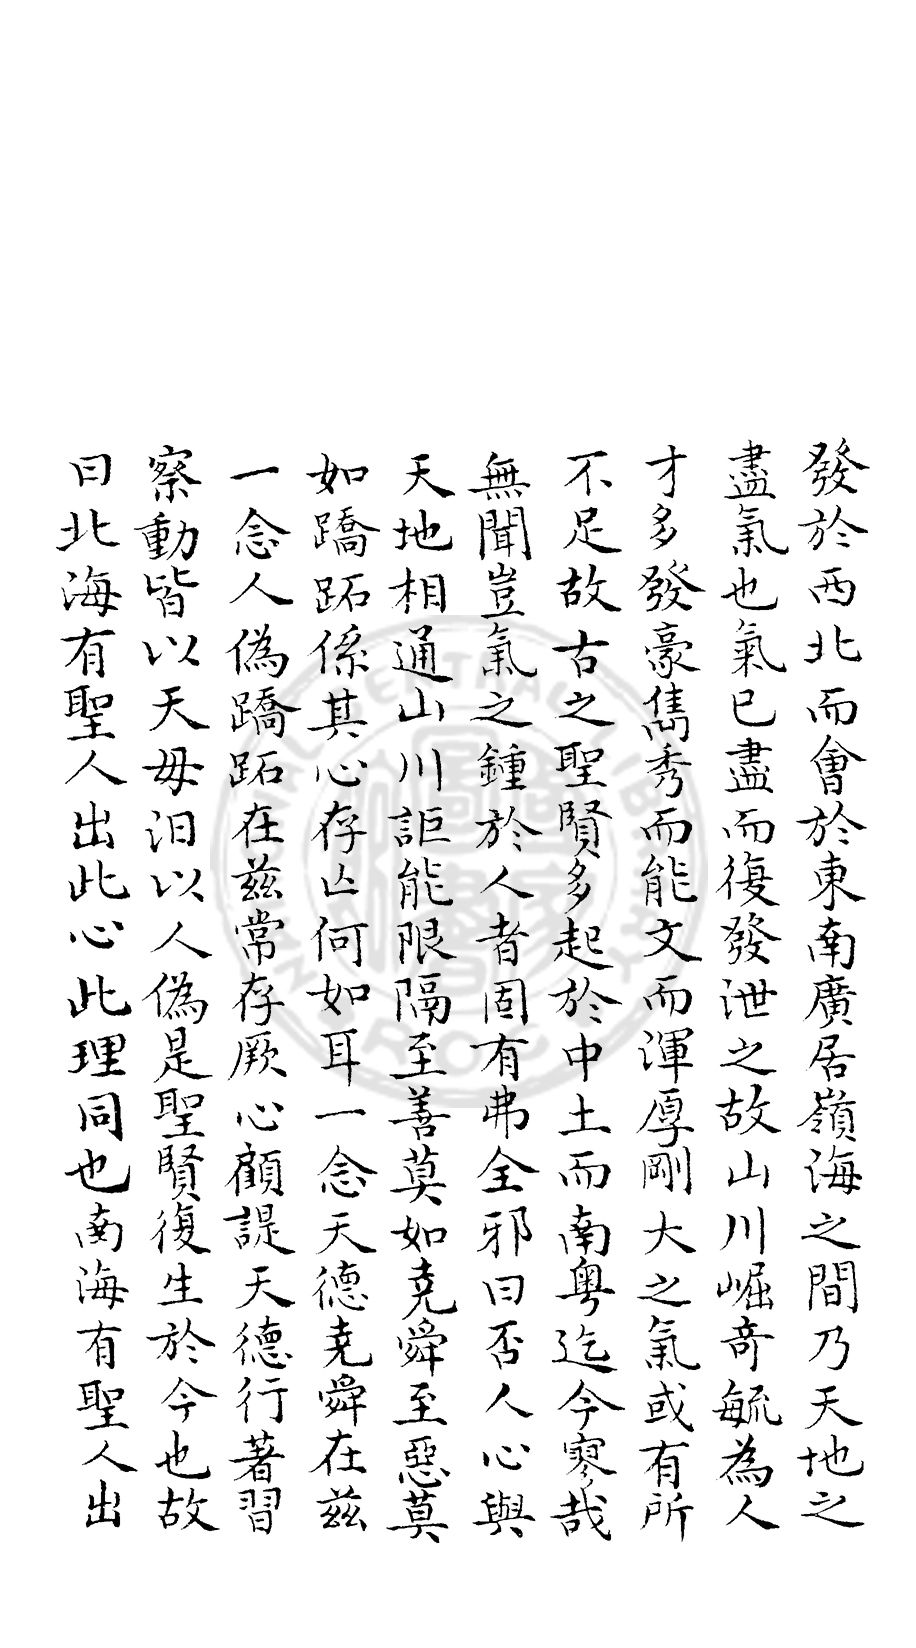 發於西北而會於東南廣居嶺海之間乃天地之
盡氣也氣已盡而復發泄之故山川崛奇毓為人
才多發豪雋秀而能文而渾厚剛大之氣或有所
不足故古之聖賢多起於中土而南粤迄今寥哉
無聞豈氣之鍾於人者固有弗全邪曰否人心與
天地相通山川詎能限隔至善莫如堯舜至惡莫
如蹻跖係其心存亾何如耳一念天德堯舜在兹
一念人偽蹻跖在兹常存厥心顧諟天德行著習
察動皆以天毋汩以人偽是聖賢復生於今也故
曰北海有聖人出此心此理同也南海有聖人出